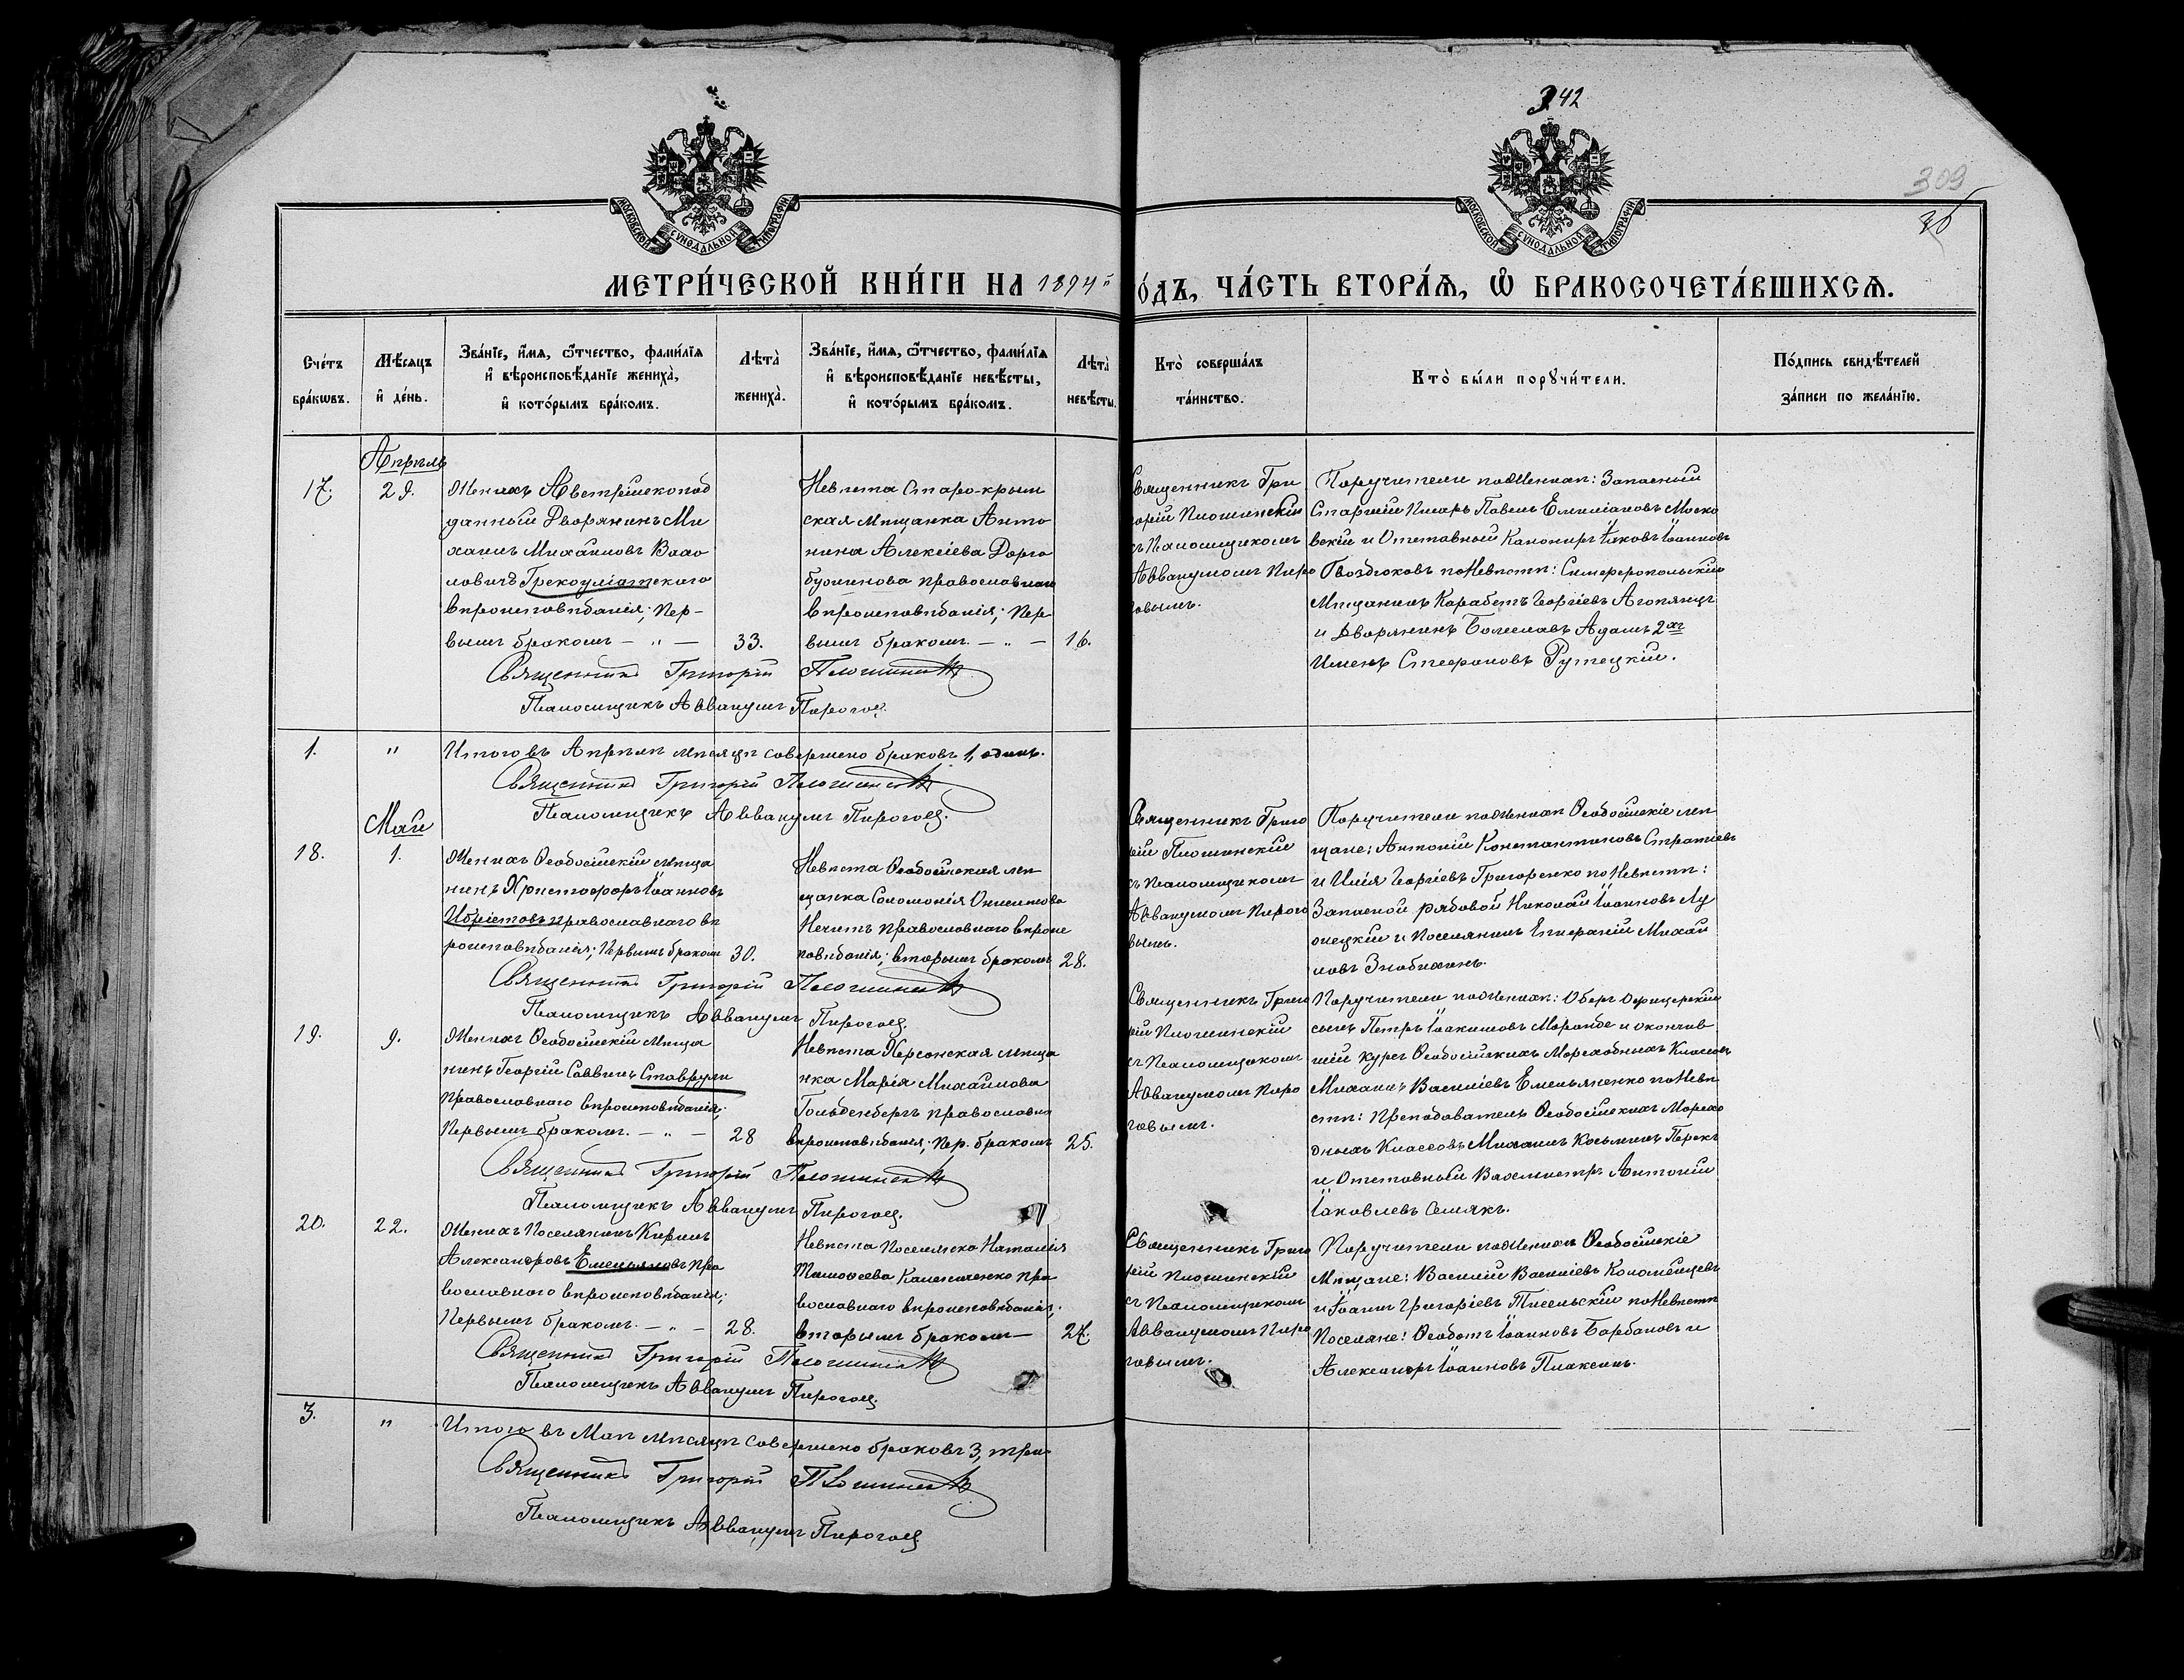 342
309
МОСКОВСКОЙ СѴНОДАЛЬНОЙ ТИПОГРАФІИ
МОСКОВСКОЙ СѴНОДАЛЬНОЙ ТИПОГРАФІИ
МЕТРИ́ЧЕСКОЙ КНИ́ГИ НА 1894й
О́ДЪ, ЧА́СТЬ ВТОРА́Я, Ѡ҆ БРАКОСОЧЕТА́ВШИХСЯ.
Сче́тъ
бра́кѡвъ.
Мѣ́сяцъ
и҆ де́нь.
Зва́нїе, и҆́мя, ѻ҆́тчество, фами́лїя
и҆ вѣроисповѣ́данїе жениха̀,
и҆ кото́рымъ бра́комъ.
Лѣта̀
жениха̀.
Зва́нїе, и҆́мя, ѻ҆́тчество, фами́лїя
и҆ вѣроисповѣ́данїе невѣ́сты,
и҆ кото́рымъ бра́комъ.
Лѣта̀
невѣ́сты.
Кто̀ соверша́лъ
та́инство.
Кто̀ бы́ли порꙋчи́тели.
По́дпись свидѣ́телей
за́писи по жела́нїю.
Апрѣль
17.
29.
Женихъ Австрійскопод
данный Дворянинъ Ми
хаилъ Михайловъ
ловичъ Грекоуніатскаго
вѣроисповѣданія; пер-
вымъ бракомъ — „ —
33.
Невѣста Старо-крым
ская мѣщанка Анто
нина Алексіева Дорго
бужинова православнаго
вѣроисповѣданія; пер
вымъ бракомъ. — „ —
16.
Священникъ Гри
горій Плошинскій
съ Псаломщикомъ
Аввакумомъ Пиро
говымъ.
Поручители по женихѣ: Запасный
Старшій Писарь Павелъ Емиліановъ Моско
вскій и Отставный Канониръ Іаковъ Іоанновъ
Гвоздюковъ по невѣстѣ: Симферопольскій
Мѣщанинъ Карабетъ Георгіевъ Агопянцъ
и Дворянинъ Болеславъ Адамъ 2хъ
Именъ Стефановъ Рутецкій.
Священникъ Григорій Плошинскій
Псаломщикъ Аввакумъ Пироговъ.
1.
"
Итого въ Апрѣлѣ мѣсяцѣ совершено браковъ 1, одинъ.
Священникъ Григорій Плошинскій
Псаломщикъ Аввакумъ Пироговъ.
Май
18.
1.
Женихъ Ѳеодосійскій мѣща
нинъ Христофоръ Іоанновъ
православнаго вѣ
роисповѣданія; первымъ бракомъ
30.
Невѣста Ѳеодосійская мѣ
щанка Соломонія Онисимова
Нечитъ православнаго вѣроис
повѣданія; вторымъ бракомъ
28.
Священникъ Григо
рій Плошинскій
съ Псаломщикомъ
Аввакумомъ Пирого
вымъ.
Поручители по женихѣ Ѳеодосійскіе мѣ
щане: Антоній Константиновъ Стратіевъ
и Илія Георгіевъ Григоренко по невѣстѣ:
Запасной рядовой Николай Іоанновъ Лу
онецкій и поселянинъ Епифаній Михай
ловъ Знобихинъ.
Священникъ Григорій Плошинскій
Псаломщикъ Аввакумъ Пироговъ.
19.
9.
Женихъ Ѳеодосійскій мѣща
нинъ Георгій Саввинъ Ставрули
православнаго вѣроисповѣданія;
первымъ бракомъ. — „ —
28
Невѣста Херсонская мѣща
нка Марія Михайлова
Гольденбергъ православна
вѣроисповѣданія; пер. бракомъ
25.
Священникъ Григо
рій Плошинскій
съ Псаломщикомъ
Аввакумомъ Пиро
говымъ.
Поручители по женихѣ: Оберъ Офицерскій
сынъ Петръ Іоакимовъ Моранде и окончив
шій курсъ Ѳеодосійскихъ Мореходныхъ Классовъ
Михаилъ Василіевъ Емельяненко по невѣ
стѣ: Преподаватель Ѳеодосійскихъ Морехо
дныхъ Классовъ Михаилъ Косьминъ
и Отставный Вахмистръ Антоній
Іаковлевъ Семякъ.
Священникъ Григорій Плошинскій
Псаломщикъ Аввакумъ Пироговъ.
20.
22.
Женихъ поселянинъ Кирилъ
Александровъ Емельяновъ пра
вославнаго вѣроисповѣданія;
первымъ бракомъ. — „ —
28.
Невѣста поселянка Наталія
Тимоѳеева Калениченко пра
вославнаго вѣроисповѣданія;
вторымъ бракомъ —
27.
Священникъ Григо
рій Плошинскій
съ Псаломщикомъ
Аввакумомъ Пиро
говымъ.
Поручители по женихѣ Ѳеодосійскіе
Мѣщане: Василій Василіевъ Коломейцевъ
и Іоаннъ Григоріевъ Тисельскій по невѣстѣ
Поселяне: Ѳеодотъ Іоанновъ Барбановъ и
Александръ Іоанновъ Плаксинъ.
Священникъ Григорій Плошинскій
Псаломщикъ Аввакумъ Пироговъ.
3.
"
Итого въ Маѣ мѣсяцѣ совершено браковъ 3, три.
Священникъ Григорій Плошинскій
Псаломщикъ Аввакумъ Пироговъ